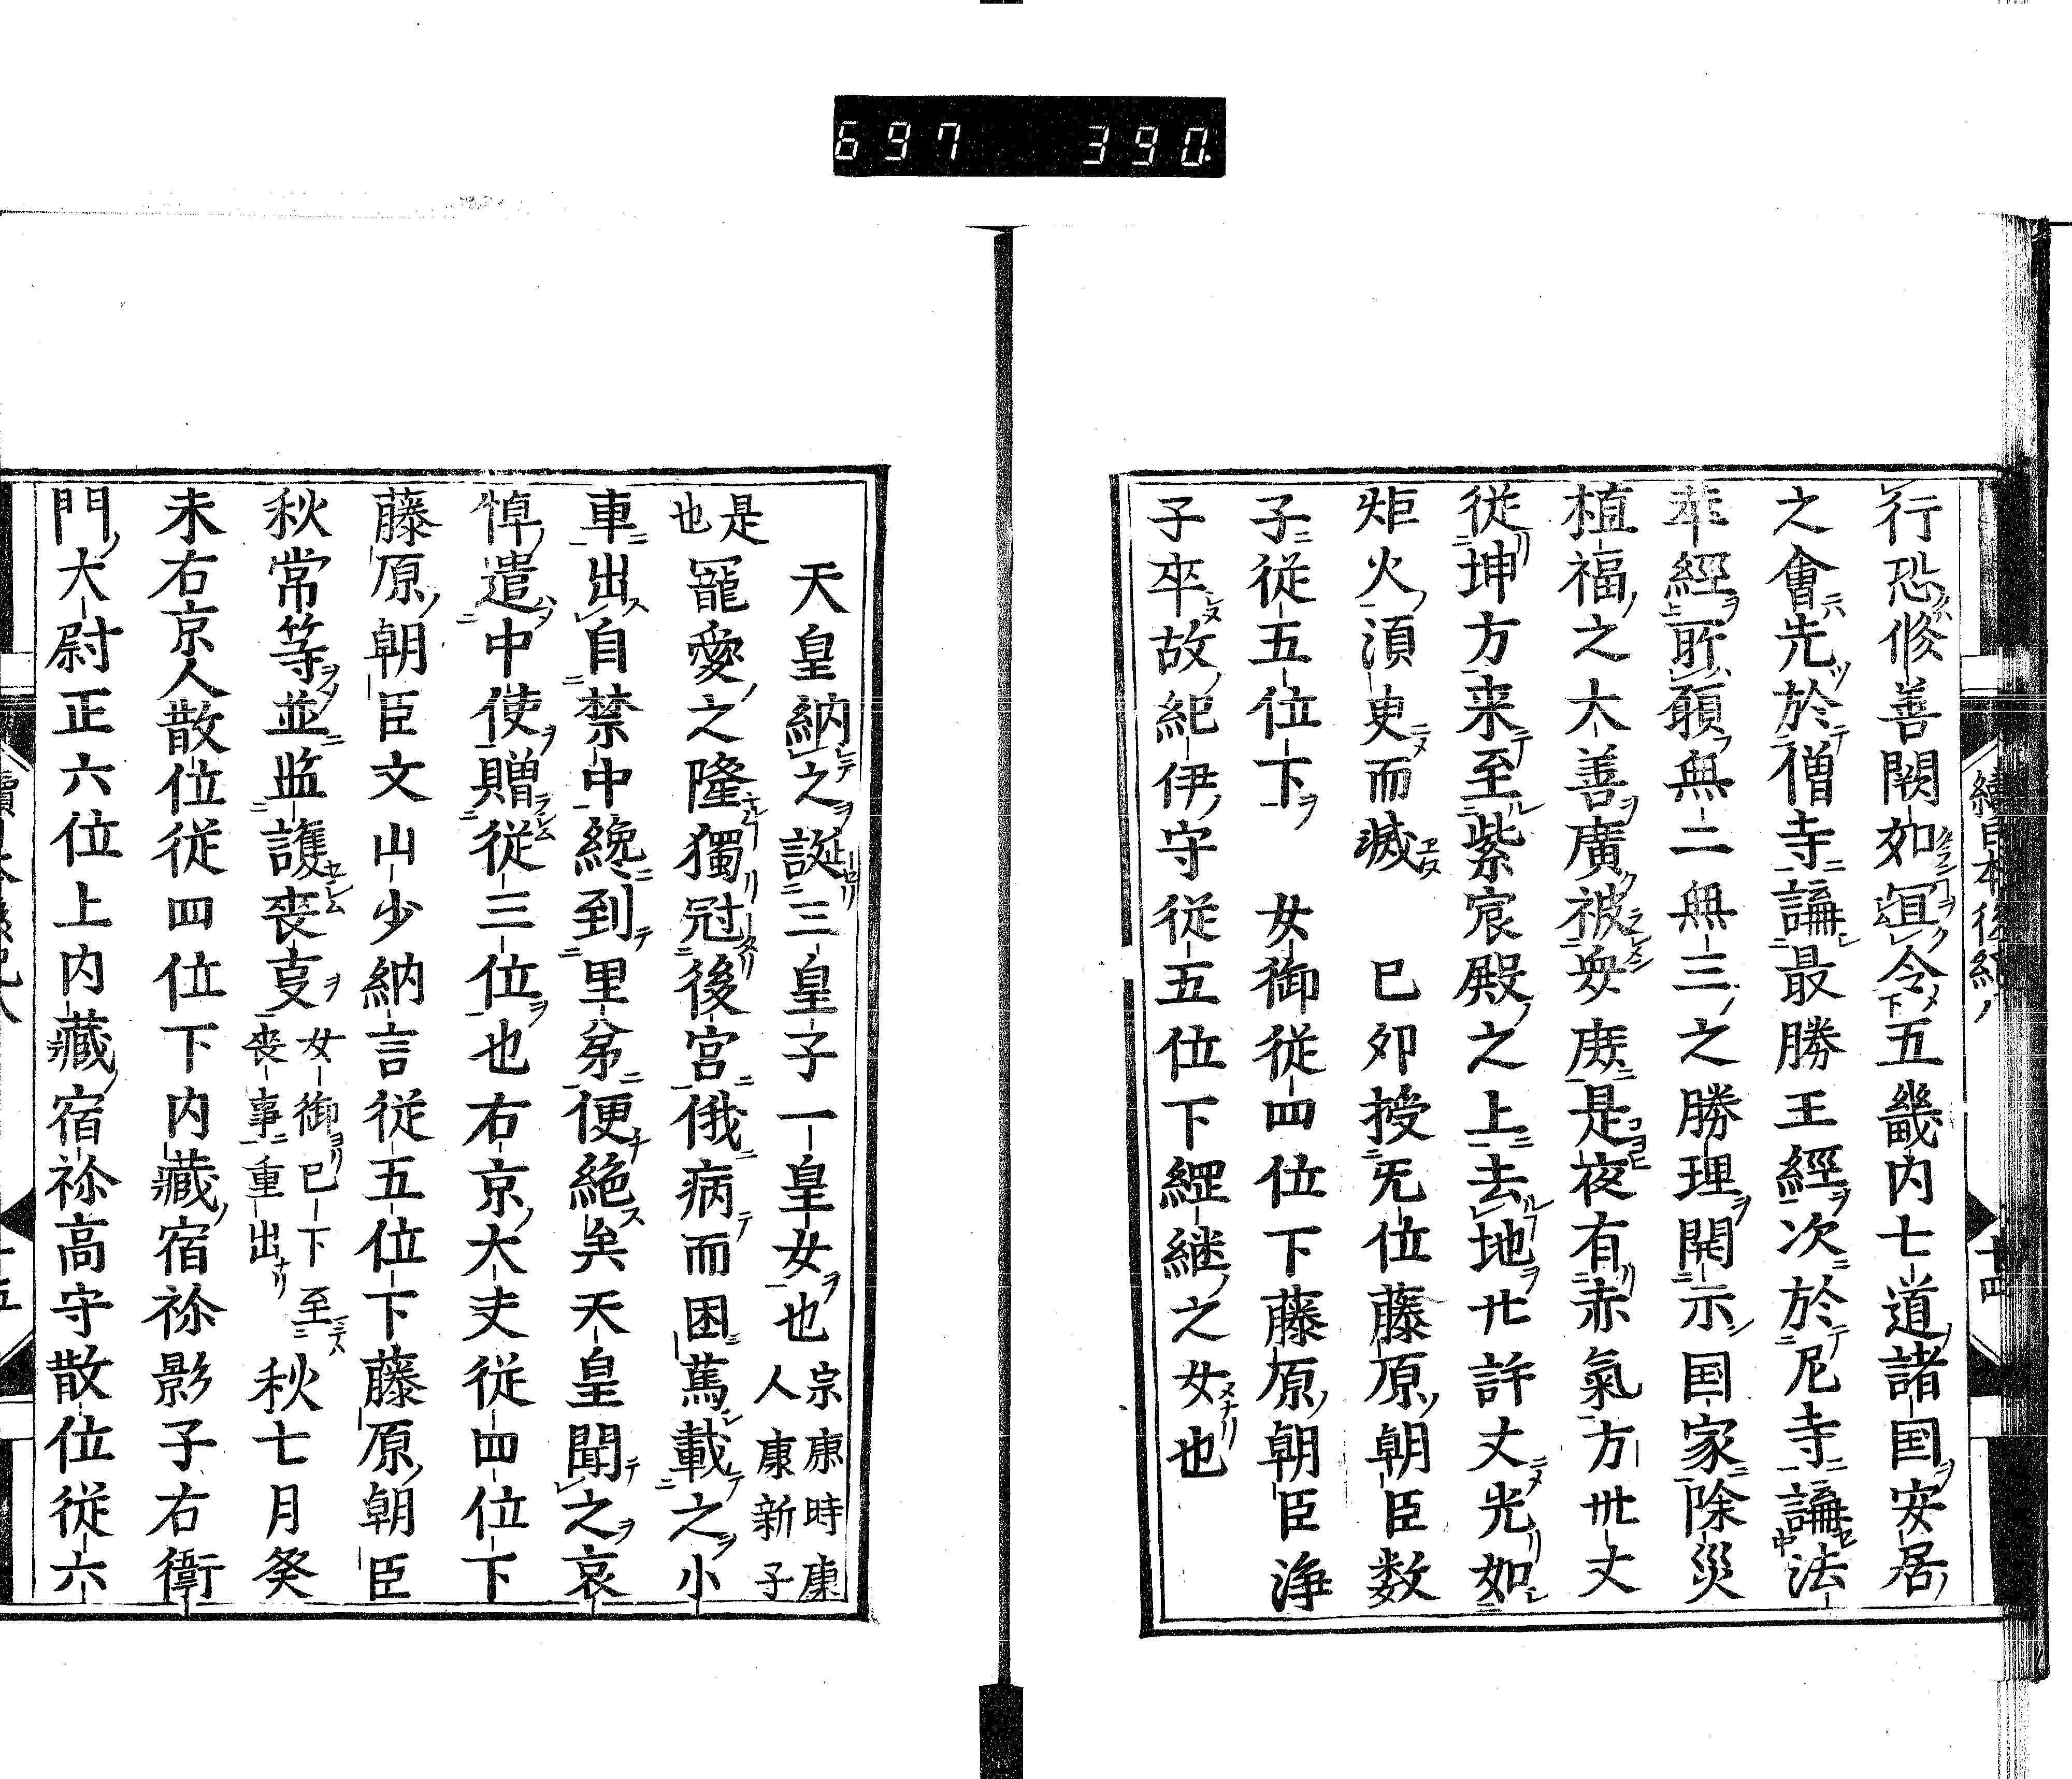 697 390.
續日本後紀
十四
行恐修善闕如宜令五畿内七道諸国安居
之會先於僧寺講最勝王經次於尼寺講法
華經所願無二無三之勝理開示国家除災
植福之大善廣被衆庶是夜有赤氣方卅丈
従坤方来至紫宸殿之上去地廿許丈光如
炬火須臾而滅　己卯授无位藤原朝臣数
子従五位下　女御従四位下藤原朝臣浄
子卒故紀伊守従五位下継継之女也
天皇納之誕三皇子一皇女也宗康時康
人康新子
是
也寵愛之隆獨冠後宮俄病而困篤載之小
車出自禁中纔到里苐便絶矣天皇聞之哀
悼遣中使贈従三位也右京大夫従四位下
藤原朝臣文山少納言従五位下藤原朝臣
秋常等並監護喪事女御已下至
喪事重出秋七月癸
未右京人散位従四位下内藏宿祢影子右衛
門大尉正六位上内藏宿祢高守散位従六